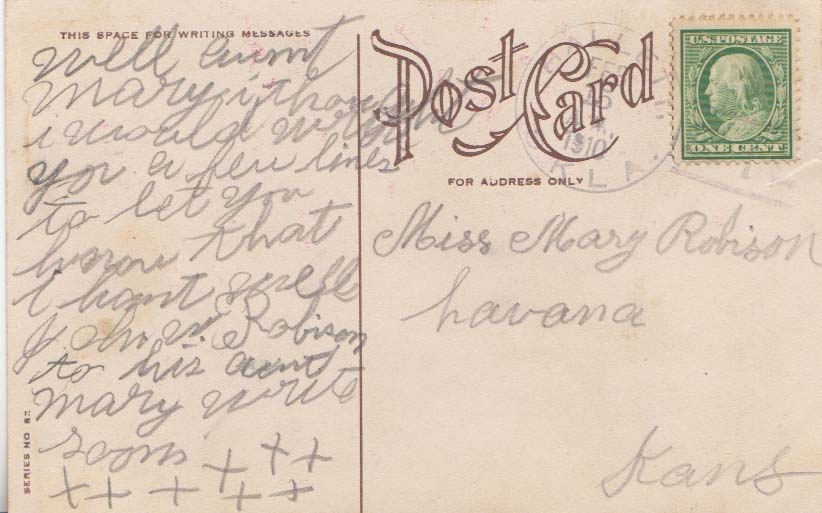 THIS SPACE FOR WRITING MESSAGES
well aunt
mary i thought
i would write
you a few lines
to let you
know that
i hant well
John W Robison
to his aunt
mary write
soon + + +
+ + + + +
SERIES NO 82
Post Card
FOR ADDRESS ONLY
FEB
1910
OKLA.
U.S. POSTAGE
ONE CENT
Miss Mary Robison
havana
Kans